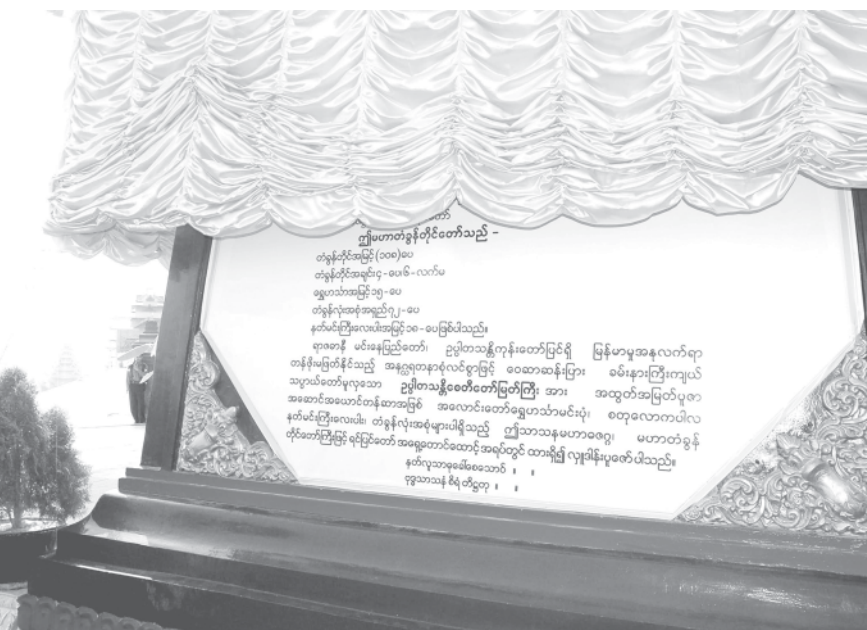 ဤမဟာတံခွန်တိုင်တော်သည် -
တံခွန်တိုင်အမြင့်(၁၀၈)ပေ
တံခွန်တိုင်အချင်း၄-ပေ၊၆-လက်မ
ရွှေဟင်္သာအမြင့်၁၅-ပေ
တံခွန်လုံးအစုံအရှည်၇၂-ပေ
နတ်မင်းကြီးလေးပါးအမြင့်၁၈-ပေဖြစ်ပါသည်။
ရာဇဓာနီ မင်းနေပြည်တော်၊ ဥပ္ပါတသန္တိကုန်းတော်ပြင်ရှိ မြန်မာမှုအနုလက်ရာ
တန်ဖိုးမဖြတ်နိုင်သည့် အနဂ္ဃရတနာစုံလင်စွာဖြင့် ဝေဆာဆန်းပြား ခမ်းနားကြီးကျယ်
သပ္ပာယ်တော်မူလှသော ဥပ္ပါတသန္တိစေတီတော်မြတ်ကြီး အား အထွတ်အမြတ်ပူဇာ
အဆောင်အယောင်တန်ဆာအဖြစ် အလောင်းတော်ရွှေဟင်္သာမင်းပုံ၊ စတုလောကပါလ
နတ်မင်းကြီးလေးပါး၊ တံခွန်လုံးအစုံများပါရှိသည့် ဤသာသနမဟာဓဇဂ္ဂ၊ မဟာတံခွန်
တိုင်တော်ကြီးဖြင့် ရင်ပြင်တော်အရှေ့တောင်ထောင့်အရပ်တွင် ထားရှိ၍ လှူဒါန်းပူဇော်ပါသည်။
နတ်လူသာဓုခေါ်စေသောဝ် ။ ။
ဗုဒ္ဓသာသနံ စိရံ တိဋ္ဌတု ။ ။